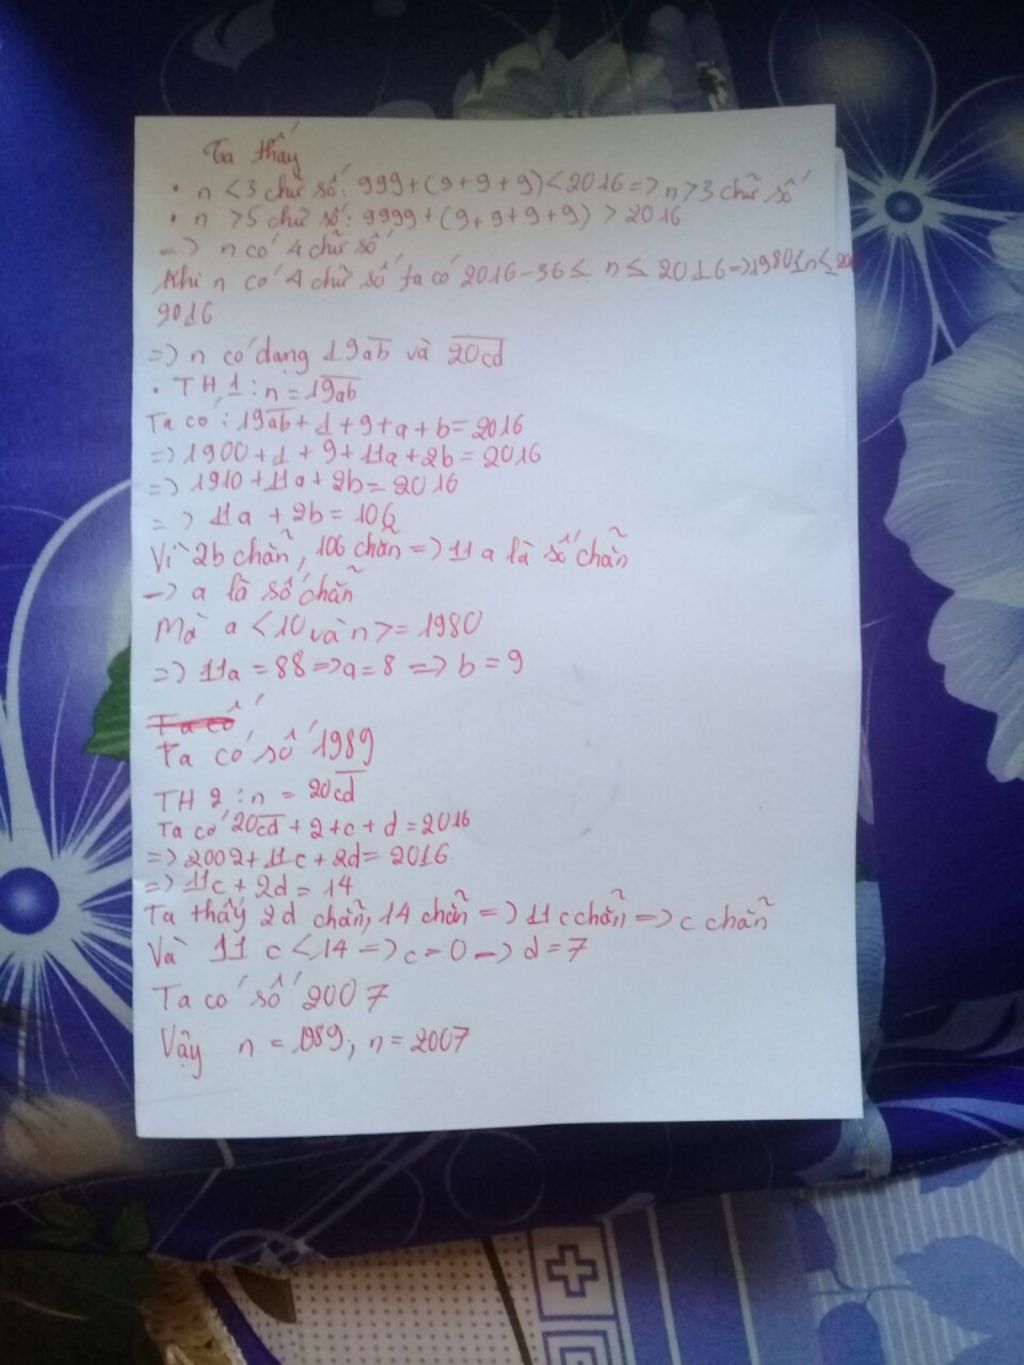 Ta thấy
• n < 3 chữ số: 999+(9+9+9)<2016=> n>3 chữ số
• n >5 chữ số: 9999+(9+9+9+9) > 2016
=> n có 4 chữ số
Khi n có 4 chữ số ta có 2016-36≤ n ≤ 2016=>1980≤n≤
2016
=> n có dạng 19ab̅ và 20cd̅
• TH 1: n = 19ab̅
Ta có: 19ab̅ + 1 + 9 + a + b = 2016
=> 1900 + 1 + 9 + 11a + 2b = 2016
=> 1910 + 11a + 2b = 2016
=> 11a + 2b = 106
Vì 2b chẵn, 106 chẵn => 11a là số chẵn
-> a là số chẵn
Mà a < 10 và n >= 1980
=> 11a = 88 => a = 8 => b = 9
Ta có số 1989
TH 2: n = 20cd̅
Ta có 20cd̅ + 2 + c + d = 2016
=> 2002 + 11c + 2d = 2016
=> 11c + 2d = 14
Ta thấy 2d chẵn, 14 chẵn => 11c chẵn => c chẵn
Và 11 c < 14 => c = 0 -> d = 7
Ta có số 2007
Vậy n = 1989; n = 2007